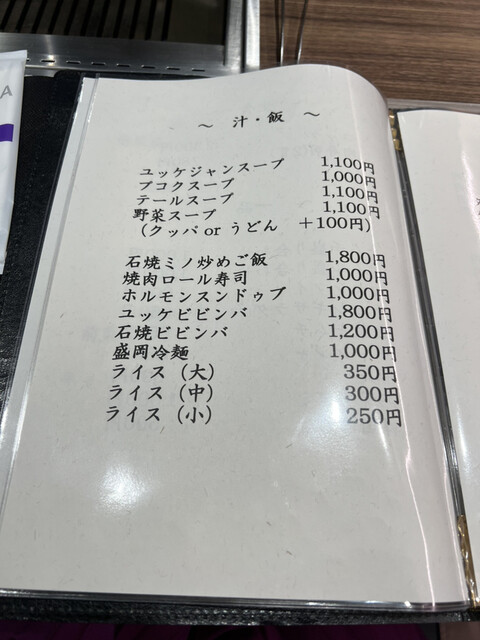 ～ 汁・飯 ～
ユッケジャンスープ 1,100円
プコクスープ 1,000円
テールスープ 1,100円
野菜スープ 1,100円
（クッパ or うどん ＋100円）
石焼ミノ炒めご飯 1,800円
焼肉ロール寿司 1,000円
ホルモンスンドゥブ 1,000円
ユッケビビンバ 1,800円
石焼ビビンバ 1,200円
盛岡冷麺 1,000円
ライス（大） 350円
ライス（中） 300円
ライス（小） 250円